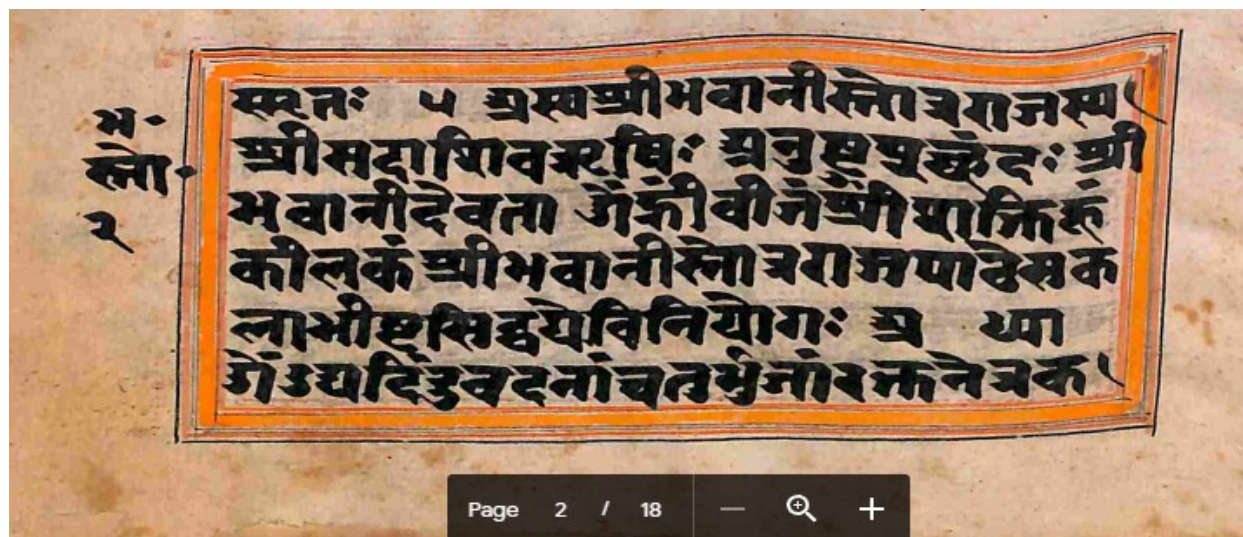 स्मृतः ५ अस्यश्रीभवानीस्तोत्रराजस्य
भ॰
श्रीसदाशिवऋषिः अनुष्टुप्छंदः श्री
स्तो॰
२
भवानीदेवता ॐह्रींवीजंश्रींशक्तिः
कीलकं श्रीभवानीस्तोत्रराजपाठेसक
लाभीष्टसिद्ध्यर्थेविनियोगः अ ध्या
ॐउद्यदिंदुवदनांचतुर्भुजांरक्तनेत्रक
Page 2 / 18